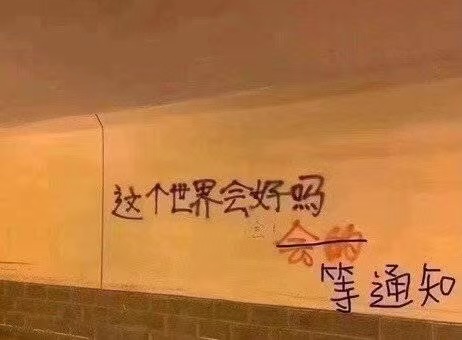 这个世界会好吗
会的
等通知